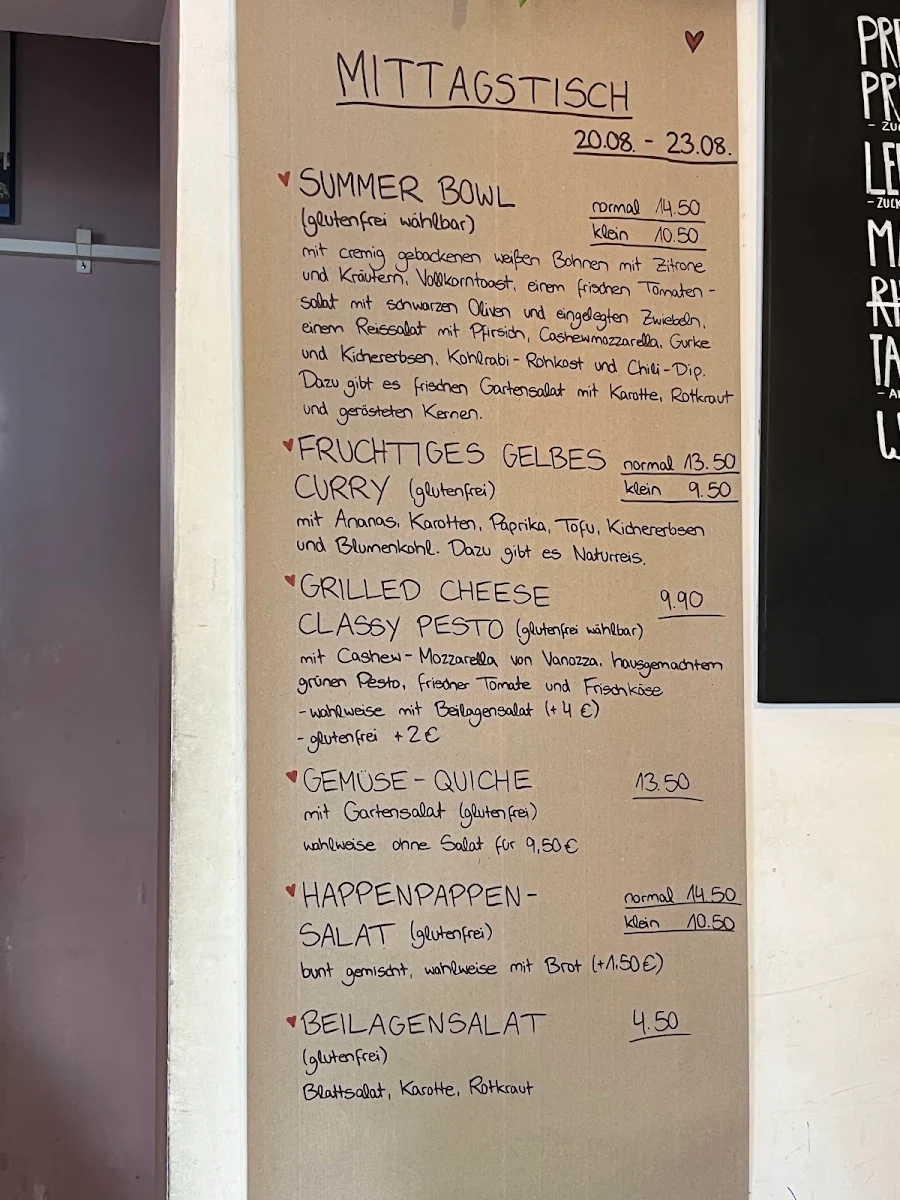 MITTAGSTISCH
20.08. - 23.08.
SUMMER BOWL
normal 14.50
(glutenfrei wählbar)
klein 10.50
mit cremig gebackenen weißen Bohnen mit Zitrone
und Kräutern, Vollkorntoast, einem frischen Tomaten-
salat mit schwarzen Oliven und eingelegten Zwiebeln,
einem Reissalat mit Pfirsich, Cashewmozzarella, Gurke
und Kichererbsen, Kohlrabi-Rohkost und Chili-Dip.
Dazu gibt es frischen Gartensalat mit Karotte, Rotkraut
und gerösteten Kernen.
FRUCHTIGES GELBES
normal 13.50
CURRY (glutenfrei)
klein 9.50
mit Ananas, Karotten, Paprika, Tofu, Kichererbsen
und Blumenkohl. Dazu gibt es Naturreis.
GRILLED CHEESE
9.90
CLASSY PESTO (glutenfrei wählbar)
mit Cashew-Mozzarella von Vanozza, hausgemachtem
grünen Pesto, frischer Tomate und Frischkäse
- wahlweise mit Beilagensalat (+4 €)
- glutenfrei +2€
GEMÜSE-QUICHE
13.50
mit Gartensalat (glutenfrei)
wahlweise ohne Salat für 9,50€
HAPPENPAPPEN-
normal 14.50
SALAT (glutenfrei)
klein 10.50
bunt gemischt, wahlweise mit Brot (+1,50€)
BEILAGENSALAT
4.50
(glutenfrei)
Blattsalat, Karotte, Rotkraut